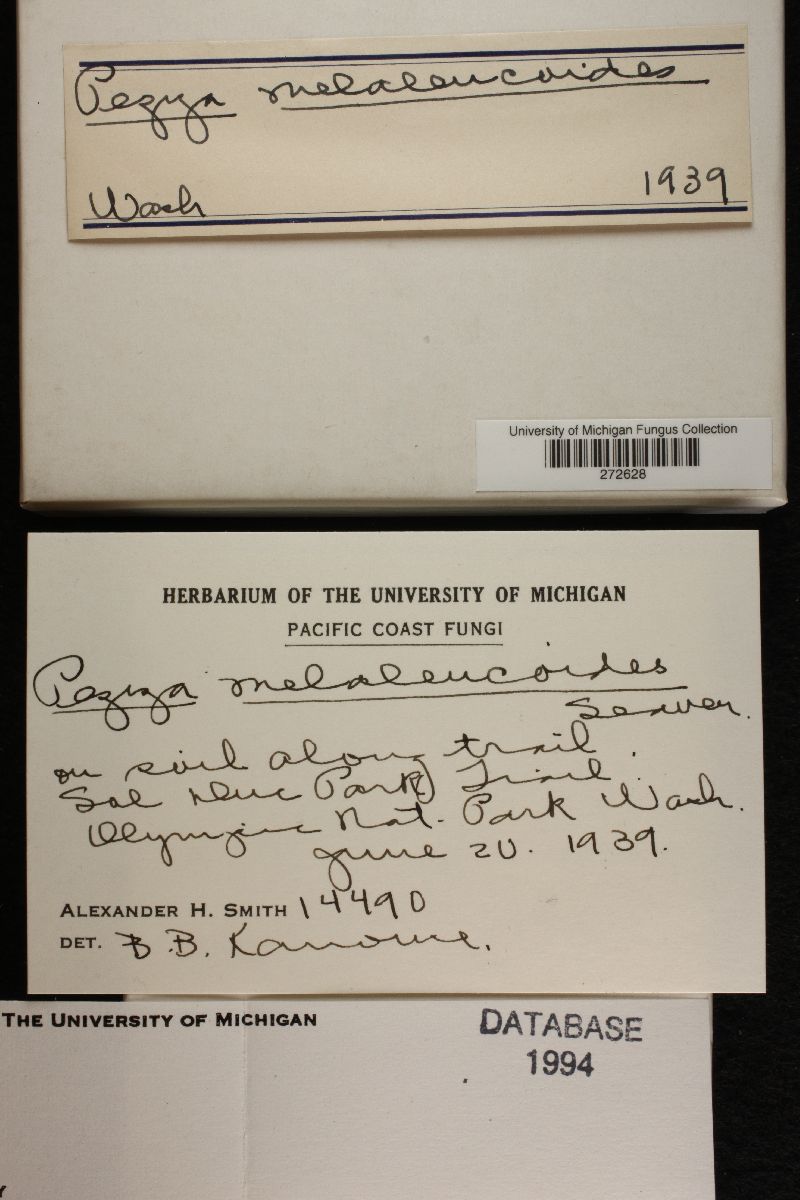 Peziza melaleucoides
Wash 1939
University of Michigan Fungus Collection
272628
HERBARIUM OF THE UNIVERSITY OF MICHIGAN
PACIFIC COAST FUNGI
Peziza melaleucoides
Seaver.
on soil along trail.
Sol Duc Park Trail.
Olympic Nat. Park Wash.
June 20. 1939.
ALEXANDER H. SMITH 14490
DET. B.B. Kanouse.
THE UNIVERSITY OF MICHIGAN
DATABASE
1994